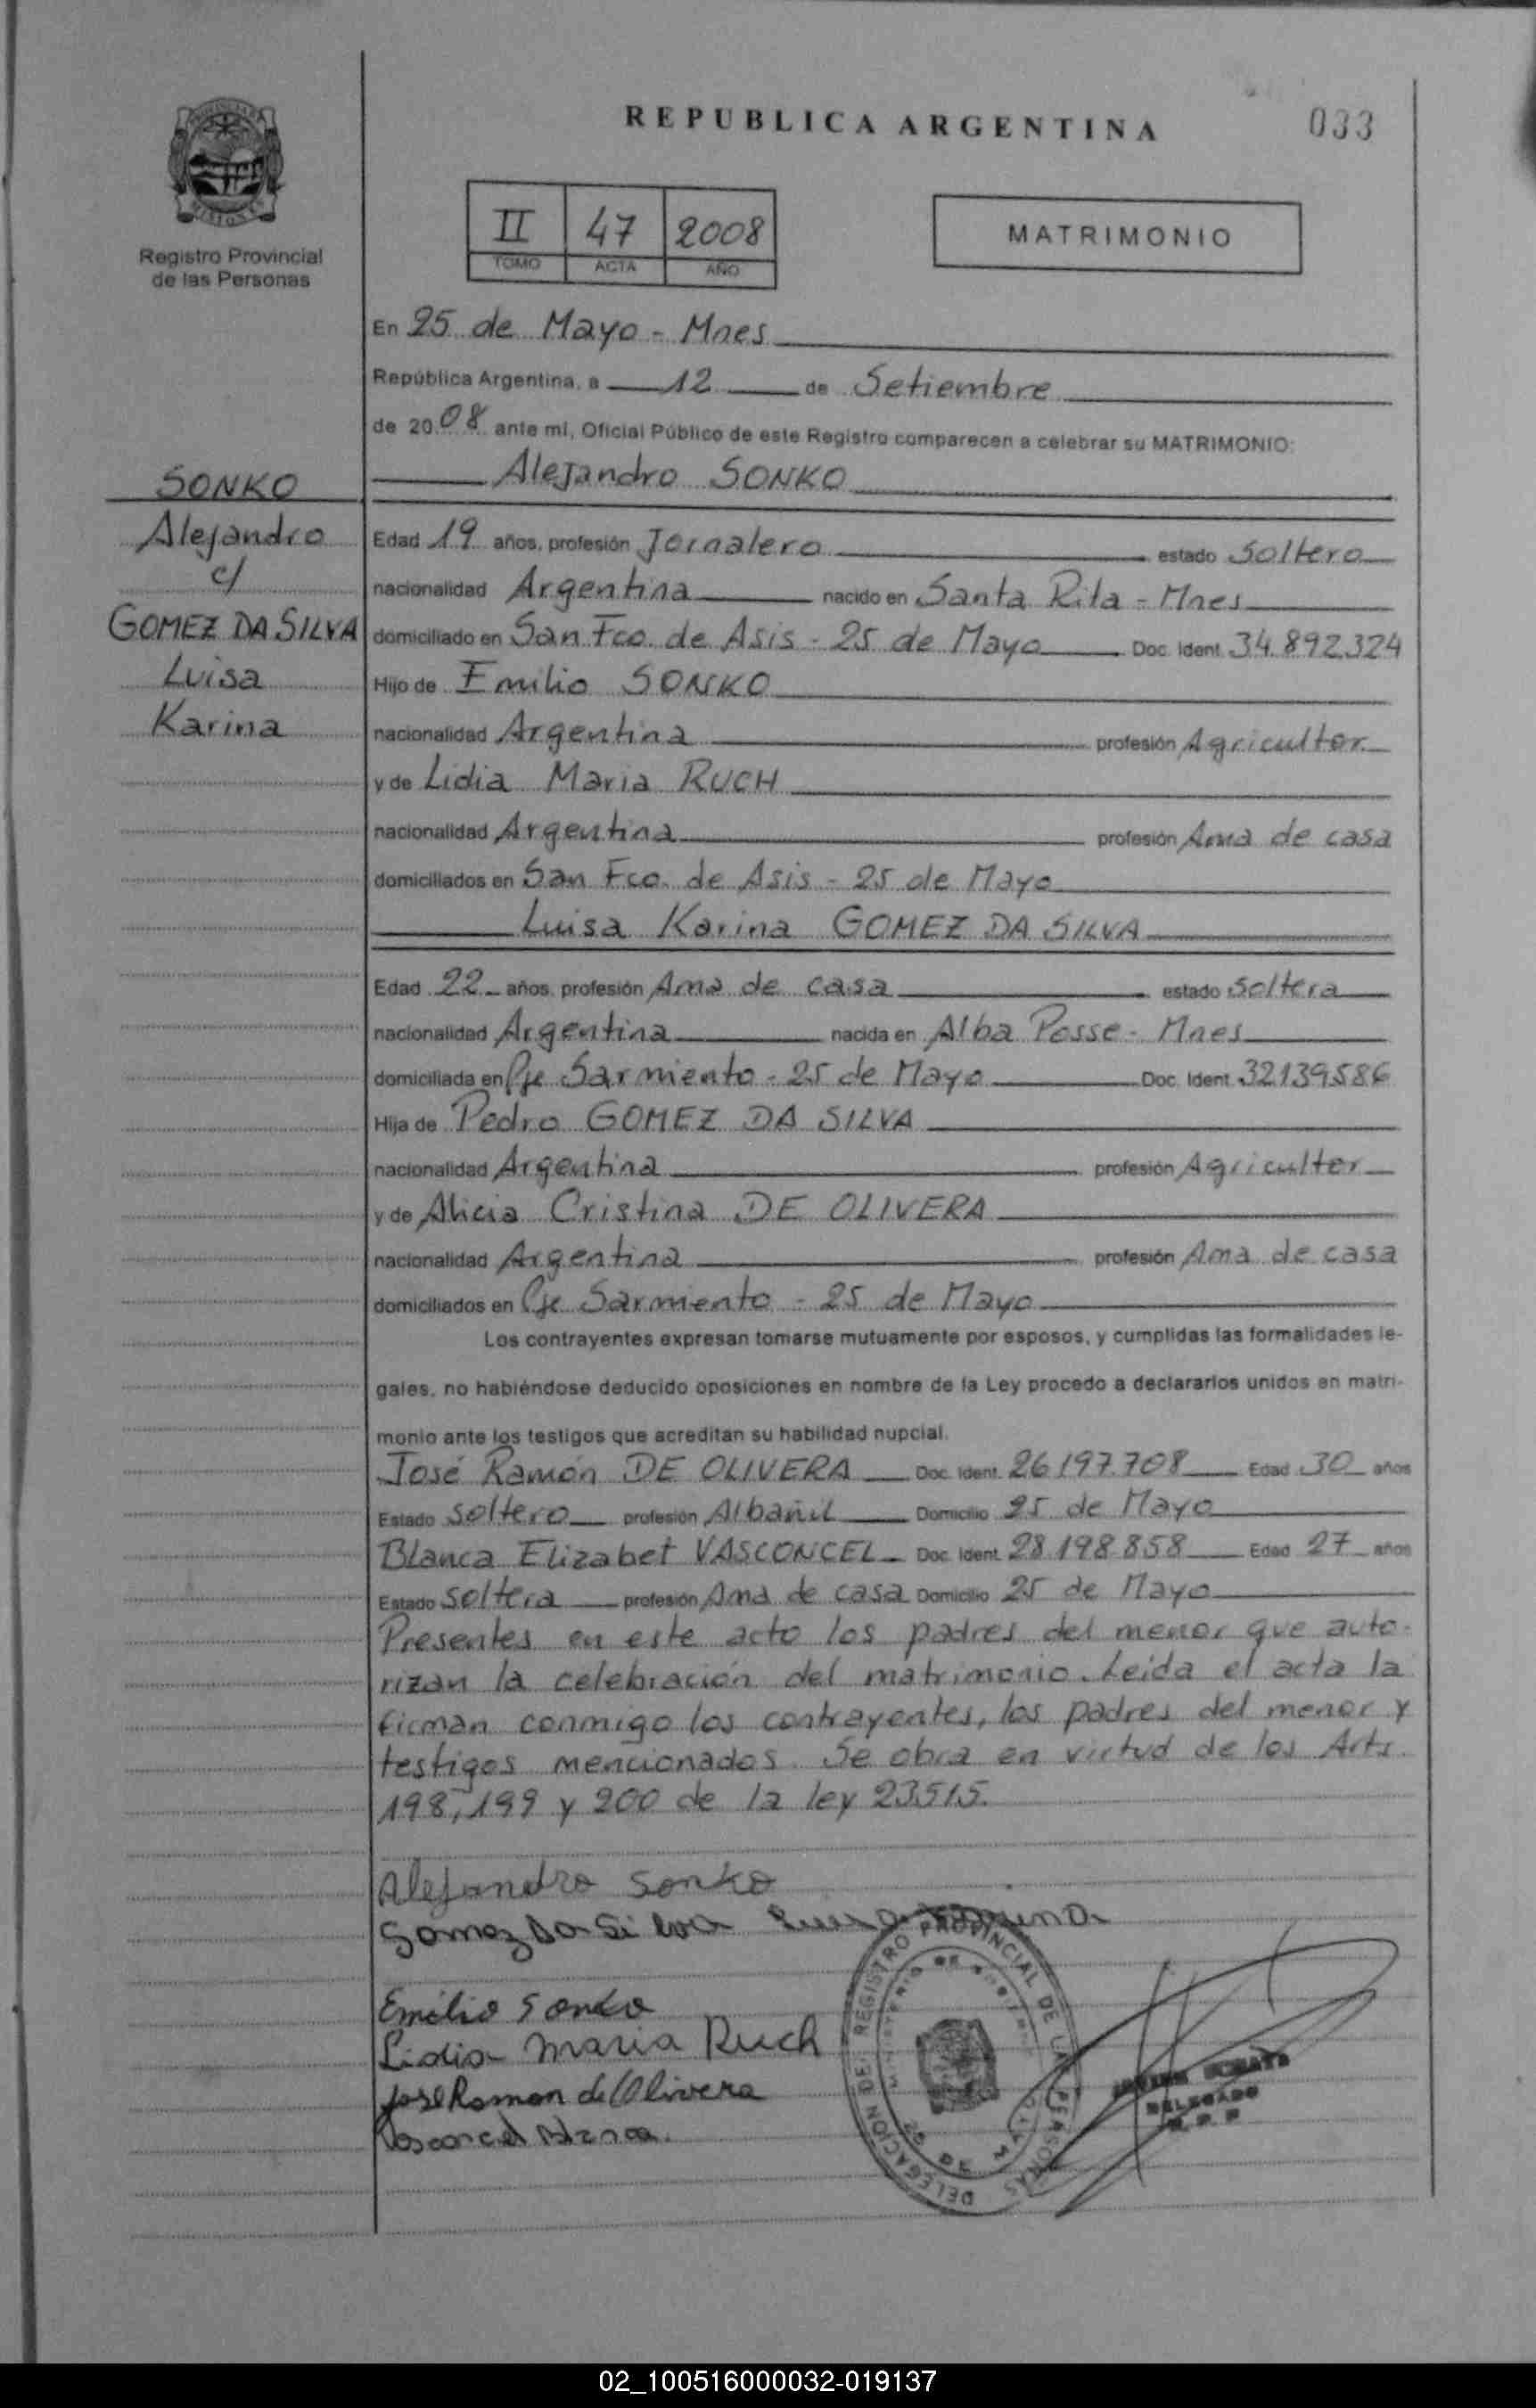 REPUBLICA ARGENTINA
033
Registro Provincial
de las Personas
II 47 2008
TOMO ACTA AÑO
MATRIMONIO
En 25 de Mayo - Mnes
República Argentina, a 12 de Setiembre
de 2008 ante mí, Oficial Público de este Registro comparecen a celebrar su MATRIMONIO:
Alejandro SONKO
SONKO
Alejandro
c/
GOMEZ DA SILVA
Luisa
Karina
Edad 19 años, profesión Jornalero estado Soltero
nacionalidad Argentina nacido en Santa Rita - Mnes
domiciliado en San Fco. de Asis - 25 de Mayo Doc. Ident. 34.892.324
Hijo de Emilio SONKO
nacionalidad Argentina profesión Agricultor
y de Lidia Maria RUCH
nacionalidad Argentina profesión Ama de casa
domiciliados en San Fco. de Asis - 25 de Mayo
Luisa Karina GOMEZ DA SILVA
Edad 22 años, profesión Ama de casa estado Soltera
nacionalidad Argentina nacida en Alba Posse - Mnes
domiciliada en Pje Sarmiento - 25 de Mayo Doc. Ident. 32139586
Hija de Pedro GOMEZ DA SILVA
nacionalidad Argentina profesión Agricultor
y de Alicia Cristina DE OLIVERA
nacionalidad Argentina profesión Ama de casa
domiciliados en Pje Sarmiento - 25 de Mayo
Los contrayentes expresan tomarse mutuamente por esposos, y cumplidas las formalidades le-
gales, no habiéndose deducido oposiciones en nombre de la Ley procedo a declararlos unidos en matri-
monio ante los testigos que acreditan su habilidad nupcial.
José Ramón DE OLIVERA Doc. Ident. 26197.708 Edad 30 años
Estado Soltero profesión Albañil Domicilio 25 de Mayo
Blanca Elizabet VASCONCEL Doc. Ident. 28.198.858 Edad 27 años
Estado Soltera profesión Ama de casa Domicilio 25 de Mayo
Presentes en este acto los padres del menor que auto-
rizan la celebración del matrimonio. Leida el acta la
firman conmigo los contrayentes, los padres del menor y
testigos mencionados. Se obra en virtud de los Arts.
198, 199 y 200 de la ley 23.515.
Alejandro Sonko
Gomez Da Silva Luisa Karina
Emilio Sonko
Lidia Maria Ruch
Jose Ramon de Olivera
Vasconcel Blanca.
DELEGACION DEL REGISTRO PROVINCIAL DE LAS PERSONAS
25 DE MAYO
DELEGADO
R.P.P.
02_100516000032-019137